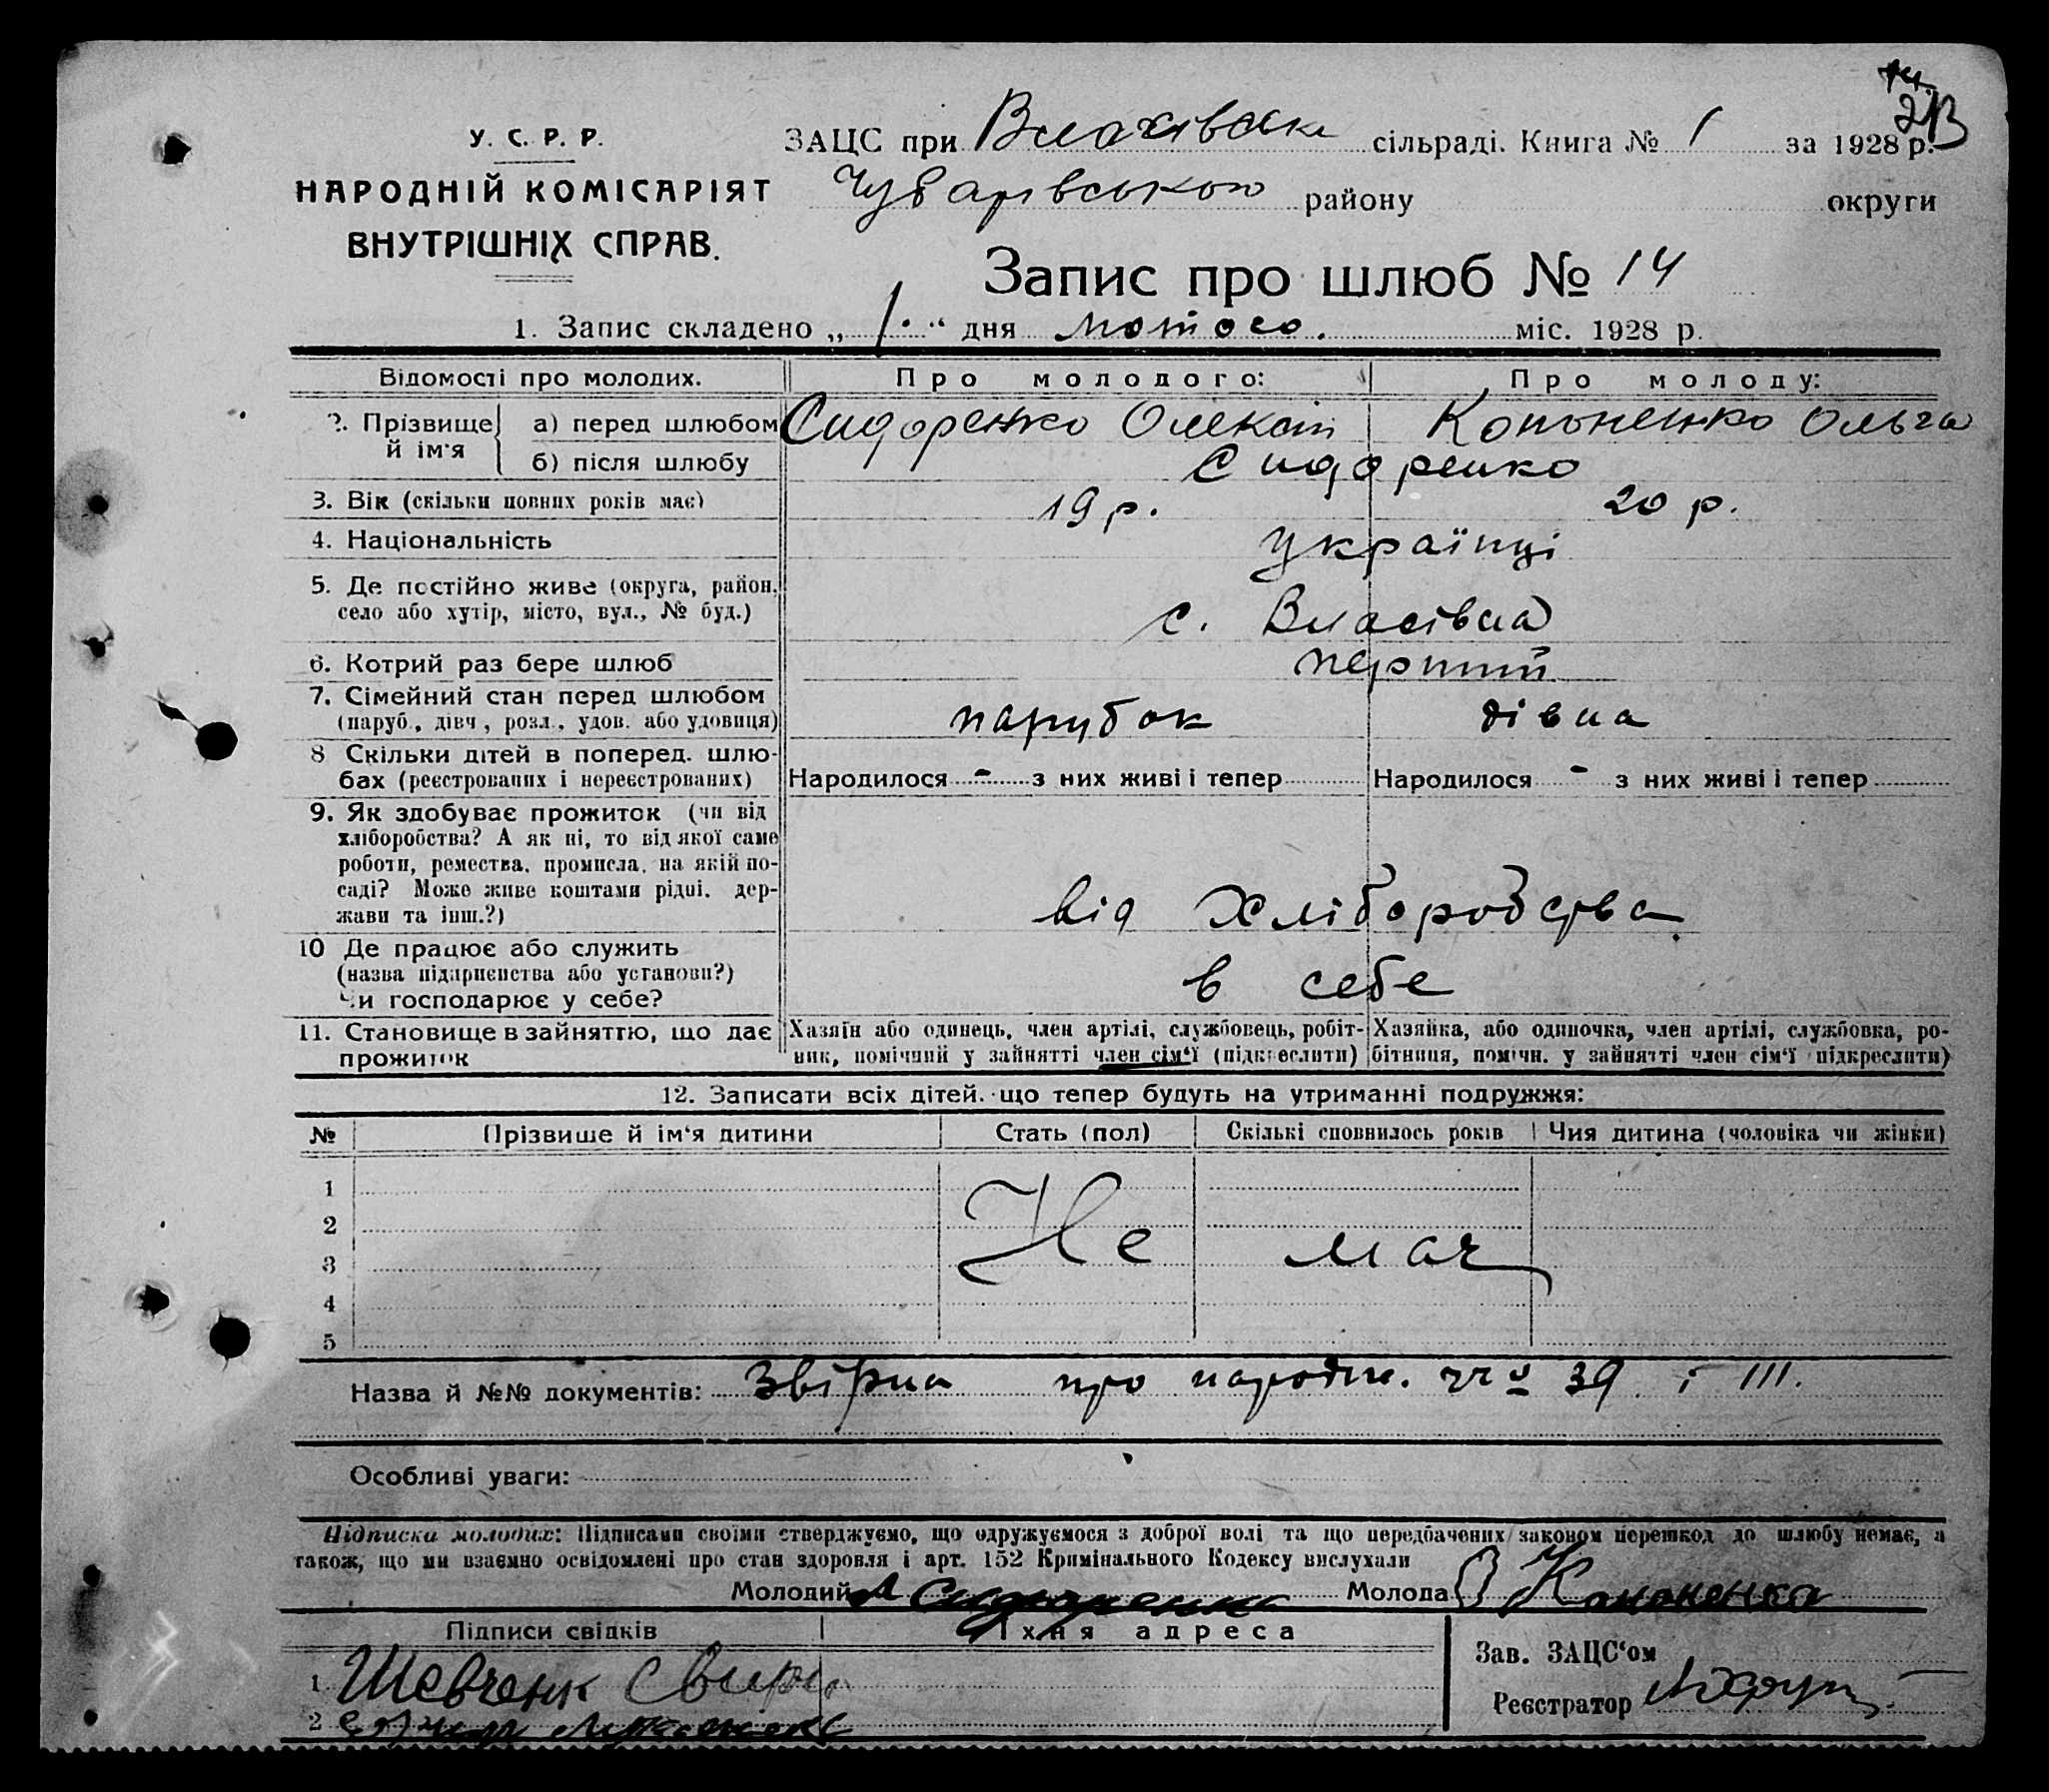 213
У. С. Р. Р.
НАРОДНІЙ КОМІСАРІЯТ
ВНУТРІШНІХ СПРАВ.
ЗАЦС при Власівські сільраді. Книга № 1 за 1928 р.
Чубарівського району округи
Запис про шлюб № 14
1. Запис складено „ 1. “ дня лютого. міс. 1928 р.
Відомості про молодих. Про молодого: Про молоду:
2. Прізвище й ім'я а) перед шлюбом Сидоренко Олексій Кононенко Ольга
б) після шлюбу Сидоренко
3. Вік (скільки повних років має) 19 р. 20 р.
4. Національність Українці
5. Де постійно живе (округа, район,
село або хутір, місто, вул., № буд.) с. Власівка
6. Котрий раз бере шлюб перший
7. Сімейний стан перед шлюбом
(паруб., дівч., розл., удов. або удовиця) парубок дівка
8 Скільки дітей в поперед. шлю-
бах (реєстрованих і нереєстрованих) Народилося - з них живі і тепер Народилося - з них живі і тепер
9. Як здобуває прожиток (чи від
хліборобства? А як ні, то від якої саме
роботи, ремества, промисла, на якій по-
саді? Може живе коштами рідні, дер-
жави та інш.?) від хліборобства
10 Де працює або служить
(назва підприємства або установи?)
Чи господарює у себе? в себе
11. Становище в зайняттю, що дає
прожиток
Хазяїн або одинець, член артілі, службовець, робіт-
ник, помічний у зайнятті член сім‘ї (підкреслити)
Хазяйка, або одиночка, член артілі, службовка, ро-
бітниця, помічн. у зайнятті член сім‘ї підкреслити)
12. Записати всіх дітей, що тепер будуть на утриманні подружжя:
№ Прізвище й ім‘я дитини Стать (пол) Скількі сповнилось років Чия дитина (чоловіка чи жінки)
1
2
3 Не має
4
5
Назва й №№ документів: Звірка про народж. № 39 і 111.
Особливі уваги:
Підписка молодих: Підписами своїми стверджуємо, що одружуємося з доброї волі та що передбачених законом перешкод до шлюбу немає, а
також, що ми взаємно освідомлені про стан здоровля і арт. 152 Кримінального Кодексу вислухали
Молодий А Сидоренко Молода Кононенко
Підписи свідків Їхня адреса
1 Шевченк
2
Зав. ЗАЦС‘ом
Реєстратор